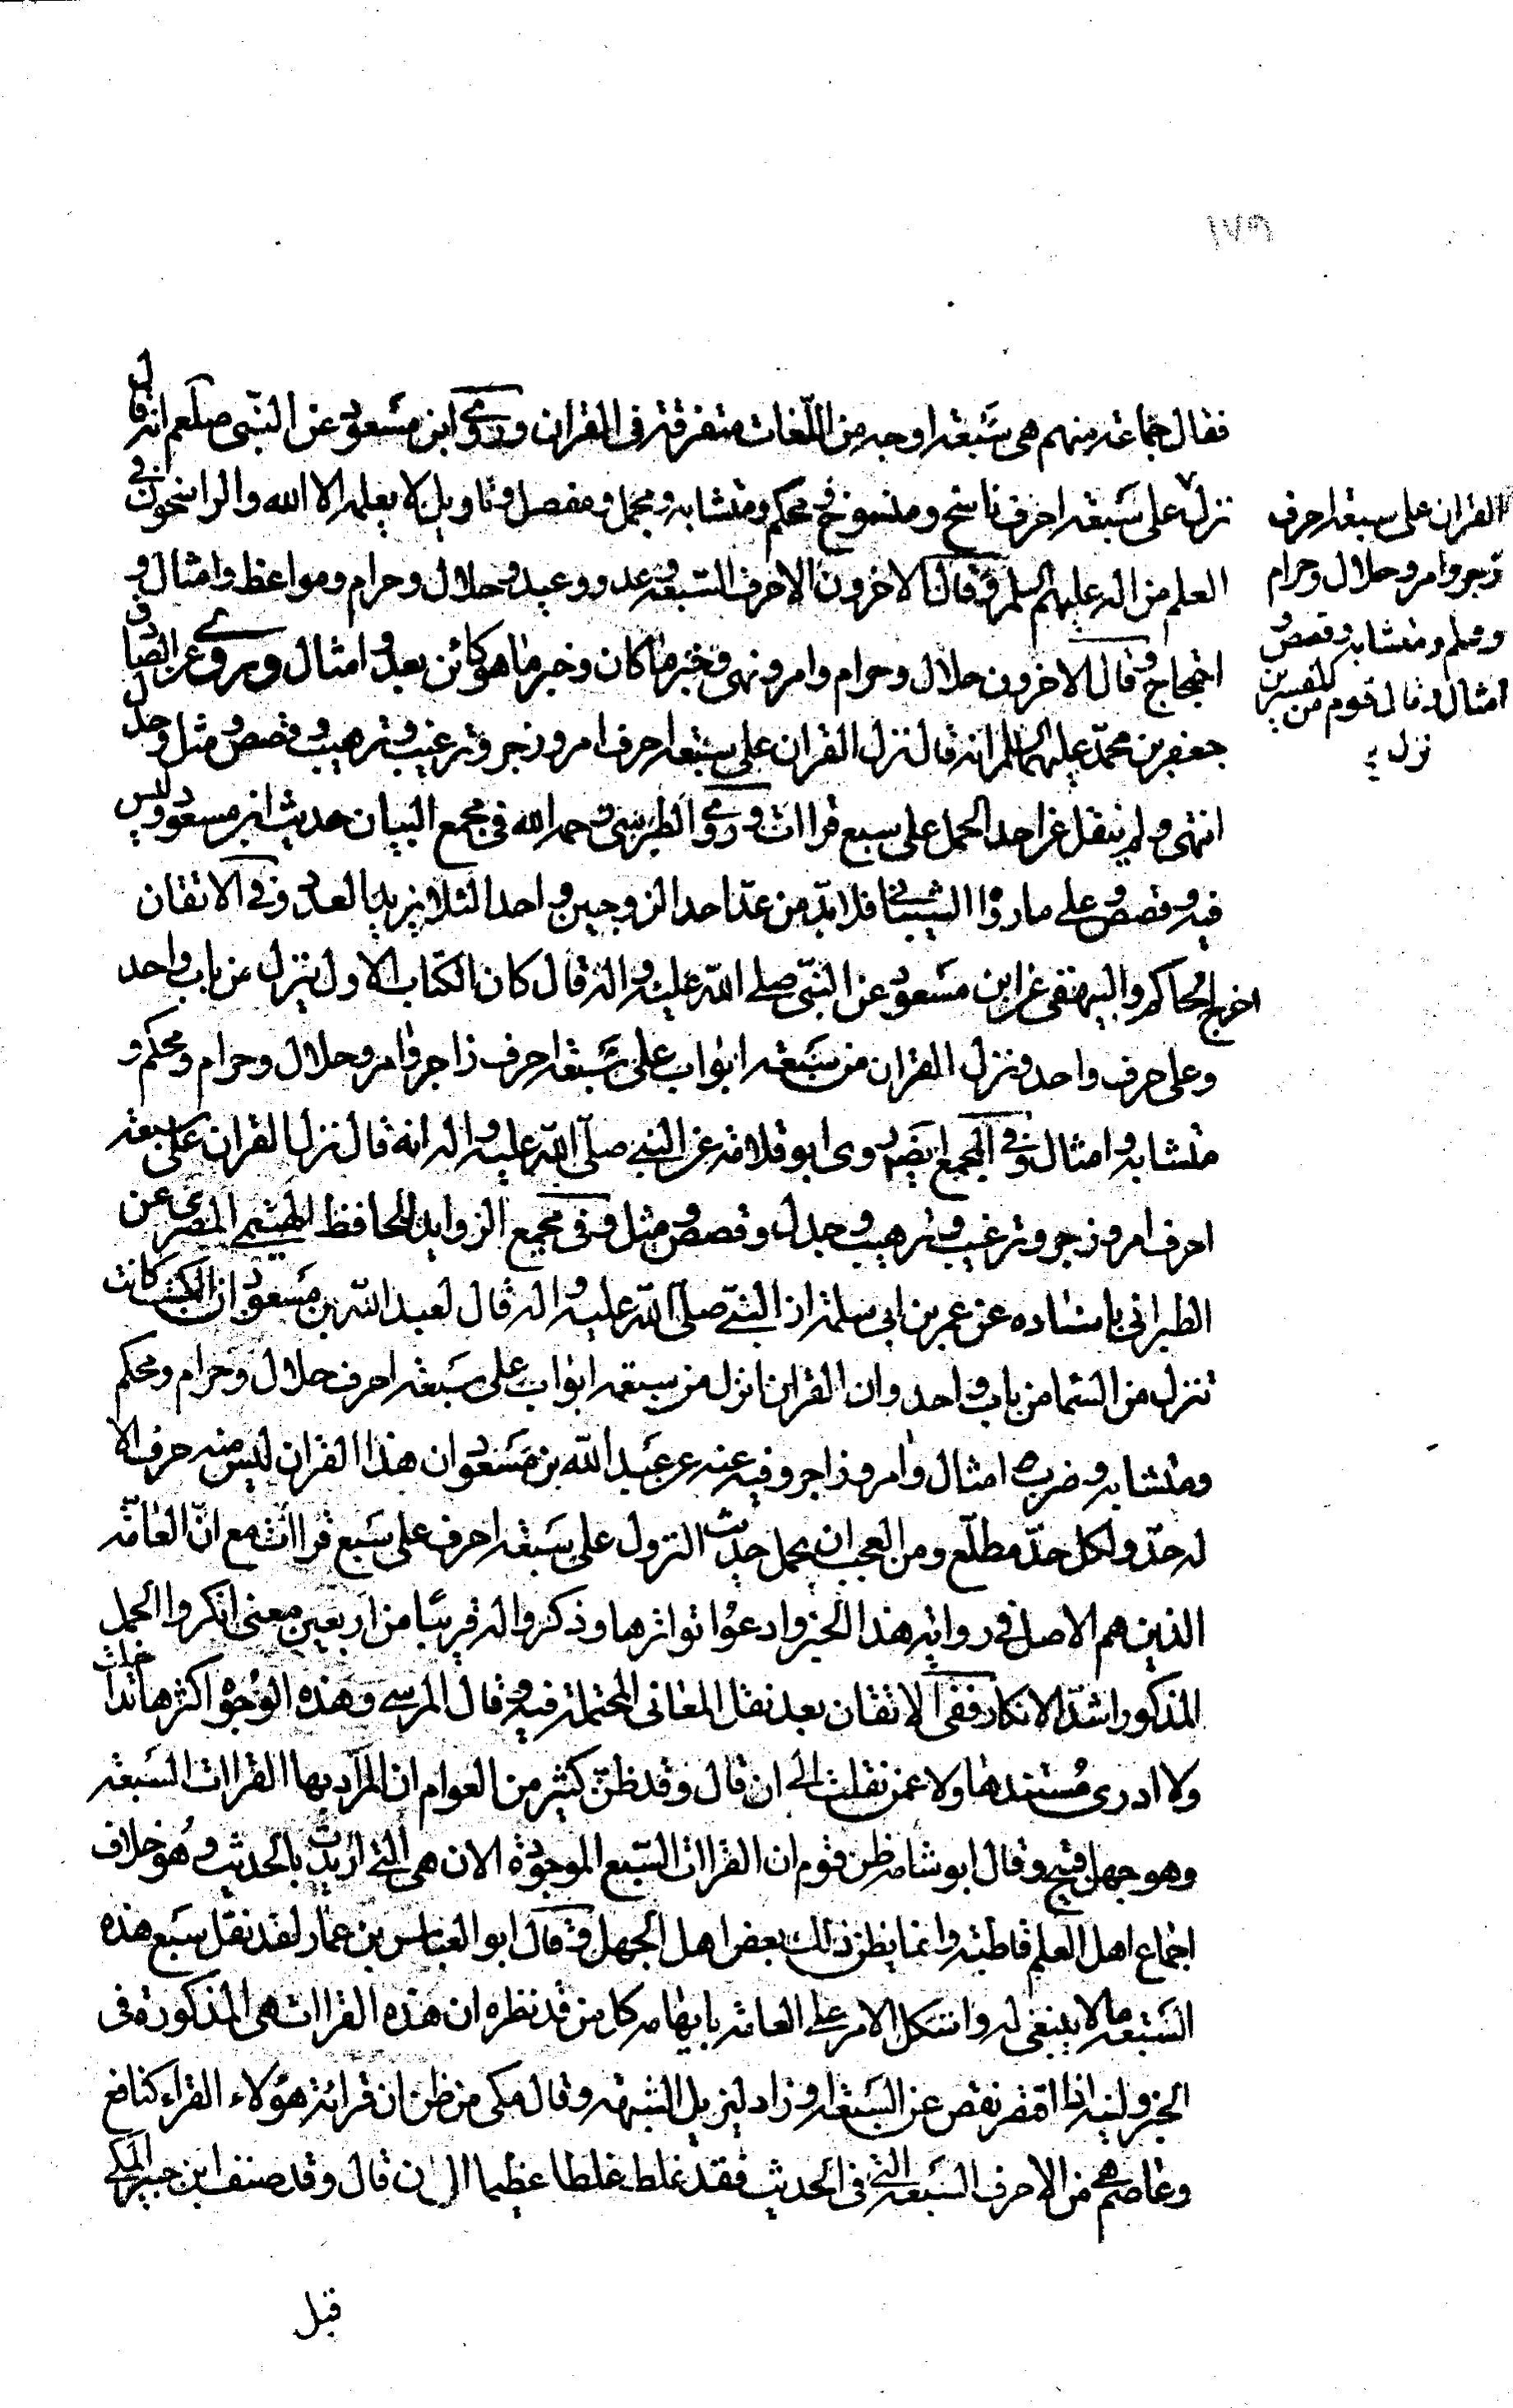 ١٧٥
فقال جماعة منهم هي سبعة اوجه من اللّغات متفرقة في القران وروى ابن مسعود عن النبّى صلعم انه قال
نزل على سبعة احرف ناسخ و منسوخ و محكم و متشابه و مجمل و مفصل و تاويل لا يعلمه الا الله والراسخون في
العلم من اله عليهم السلم و قال الاخرون الاحرف السبعة وعد و وعيد و حلال و حرام و مواعظ و امثال و
احتجاج و قال الاخرون حلال و حرام و امر و نهى و خبر ما كان و خبر ما هو كائن بعد و امثال و يروى عن الصادق
جعفر بن محمّد عليهما السلم انه قال نزل القران على سبعة احرف امر و زجر و ترغيب و ترهيب و قصص و مثل و جدل
انتهى و لم ينقل عن احد الحمل على سبع قراات و روى الطبرسى رحمه الله في مجمع البيان حديث ابن مسعود و ليس
فيه و قصص على ما رواه الشيبانى فلا بدّ من عدّ احد الزوجين و احد الثلاثة يزيد العدد و في الاتقان
اخرج الحاكم والبيهقى عن ابن مسعود عن النبّى صلى الله عليه و اله قال كان الكتاب الاول ينزل من باب واحد
وعلى حرف واحد و نزل القران من سبعة ابواب على سبعة احرف زاجر و امر و حلال و حرام و محكم و
متشابه و امثال و في المجمع ايضا روى ابو قلابة عن النبي صلّى الله عليه و اله انه قال نزل القران على سبعة
احرف امر و زجر و ترغيب و ترهيب و جدل و قصص و مثل و في مجمع الزوايد للحافظ الهيثمى المصرى عن
الطبرانى باسناده عن عمر بن ابى سلمة ان النبّى صلّى الله عليه و اله قال لعبد الله بن مسعود ان الكتب كانت
تنزل من السّما من باب واحد و ان القران نزل من سبعة ابواب على سبعة احرف حلال و حرام و محكم
و متشابه و ضرب امثال و امر و زاجر و فيه عنه عن عبد الله بن مسعود ان هذا القران ليس منه حرف الا
له حدّ و لكل حدّ مطلّع و من العجب ان يحمل حديث النزول على سبعة احرف على سبع قراات مع انّ العامّة
الذين هم الاصل في رواية هذا الخبر و ادعوا تواترها و ذكروا له قريبًا من اربعين معنى انكروا الحمل
المذكور اشدّ الانكار ففى الاتقان بعد نقل المعانى المحتملة فيه و قال المرسى و هذه الوجوه اكثرها تداخلت
ولا ادرى مستندها ولا عمن نقلت الى ان قال و قد ظنّ كثير من العوام ان المراد بها القراات السبعة
وهو جهل قبيح و قال ابو شامة ظن قوم ان القراات السّبع الموجودة الان هى التى اريدت بالحديث و هو خلاف
اجماع اهل العلم قاطبة و انما يظن ذلك بعض اهل الجهل و قال ابو العباس بن عمار لقد نقل سبع هذه
السّبعة ما لا ينبغى له و اشكل الامر على العامة بايهامه كل من قد نظره ان هذه القراات هى المذكورة فى
الخبر و ليته اذا اقتصر نقص عن السّبعة او زاد ليزيل الشبهة و قال مكى من ظن ان قرائة هؤلاء القراء كنافع
و عاصم هى من الاحرف السّبعة التى فى الحديث فقد غلط غلطا عظيما الى ان قال و قد صنف ابن جبير المكى
قبل
القران على سبعة احرف
زجر و امر و حلال و حرام
و محكم و متشابه و قصص و
امثال و قال قوم من المفسرين
نزل